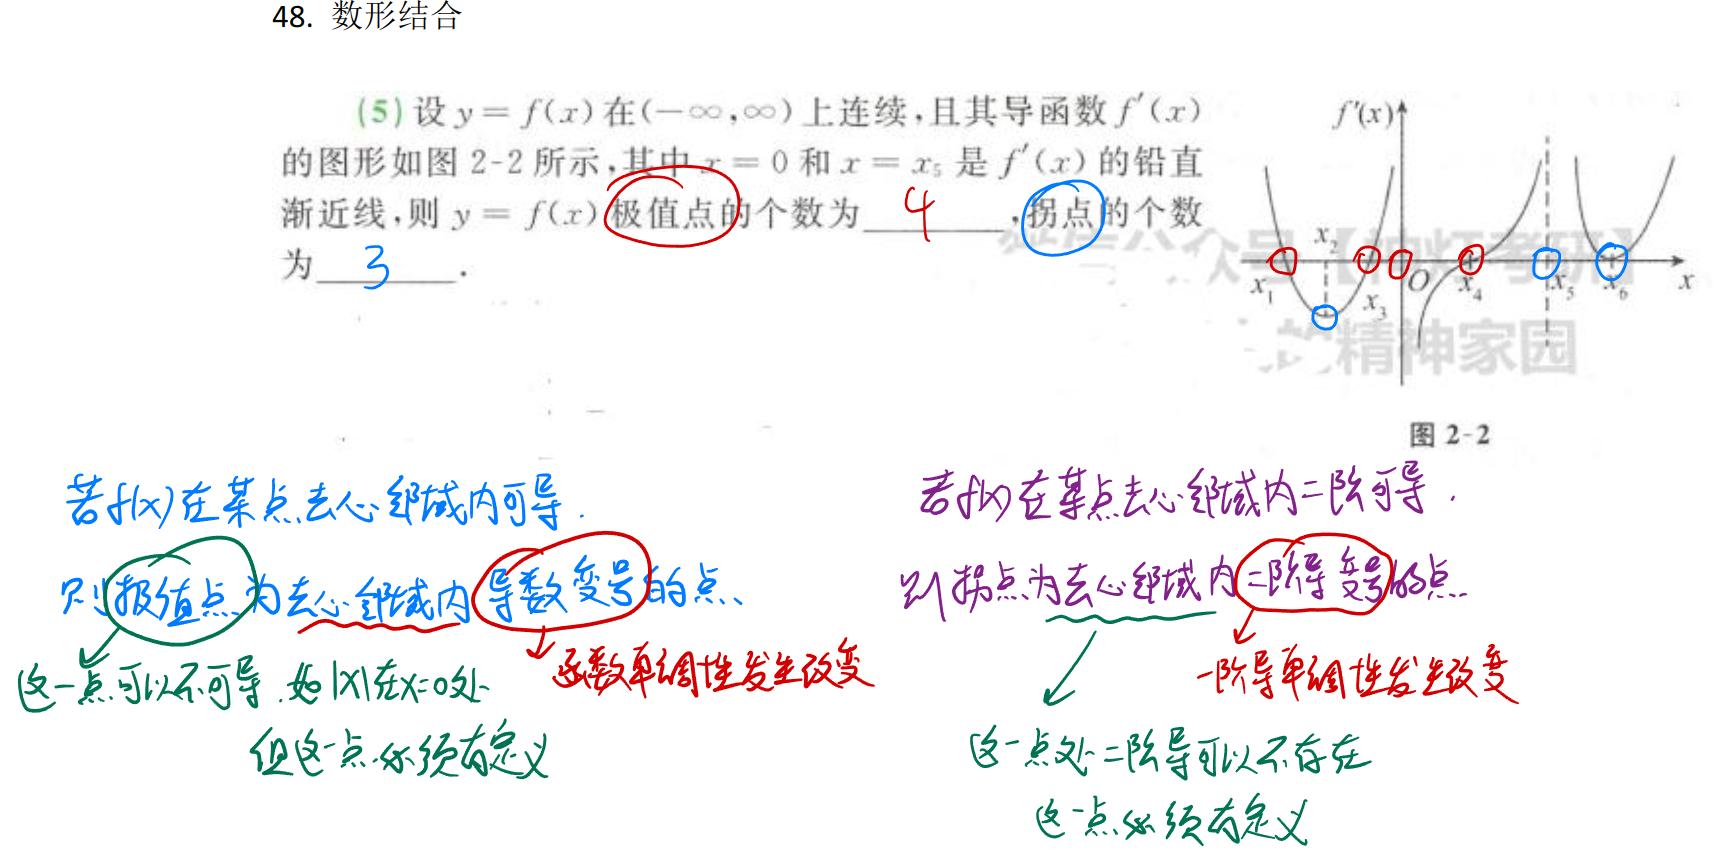 48. 数形结合
(5) 设 y = f(x) 在 (−∞,∞) 上连续,且其导函数 f′(x)
的图形如图 2-2 所示,其中 x = 0 和 x = x₅ 是 f′(x) 的铅直
渐近线,则 y = f(x) 极值点的个数为 4 ,拐点的个数
为 3 .
f′(x)
x₂
x₁
x₃
O
x₄
x₅
x₆
x
众号【神灯考研】
的精神家园
图 2-2
若f(x)在某点去心邻域内可导.
则极值点为去心邻域内导数变号的点、
这一点可以不可导.如|x|在x=0处
但这一点必须有定义
函数单调性发生改变
若f(x)在某点去心邻域内二阶可导.
则拐点为去心邻域内二阶导变号的点.
一阶导单调性发生改变
这一点处二阶导可以不存在
这一点必须有定义